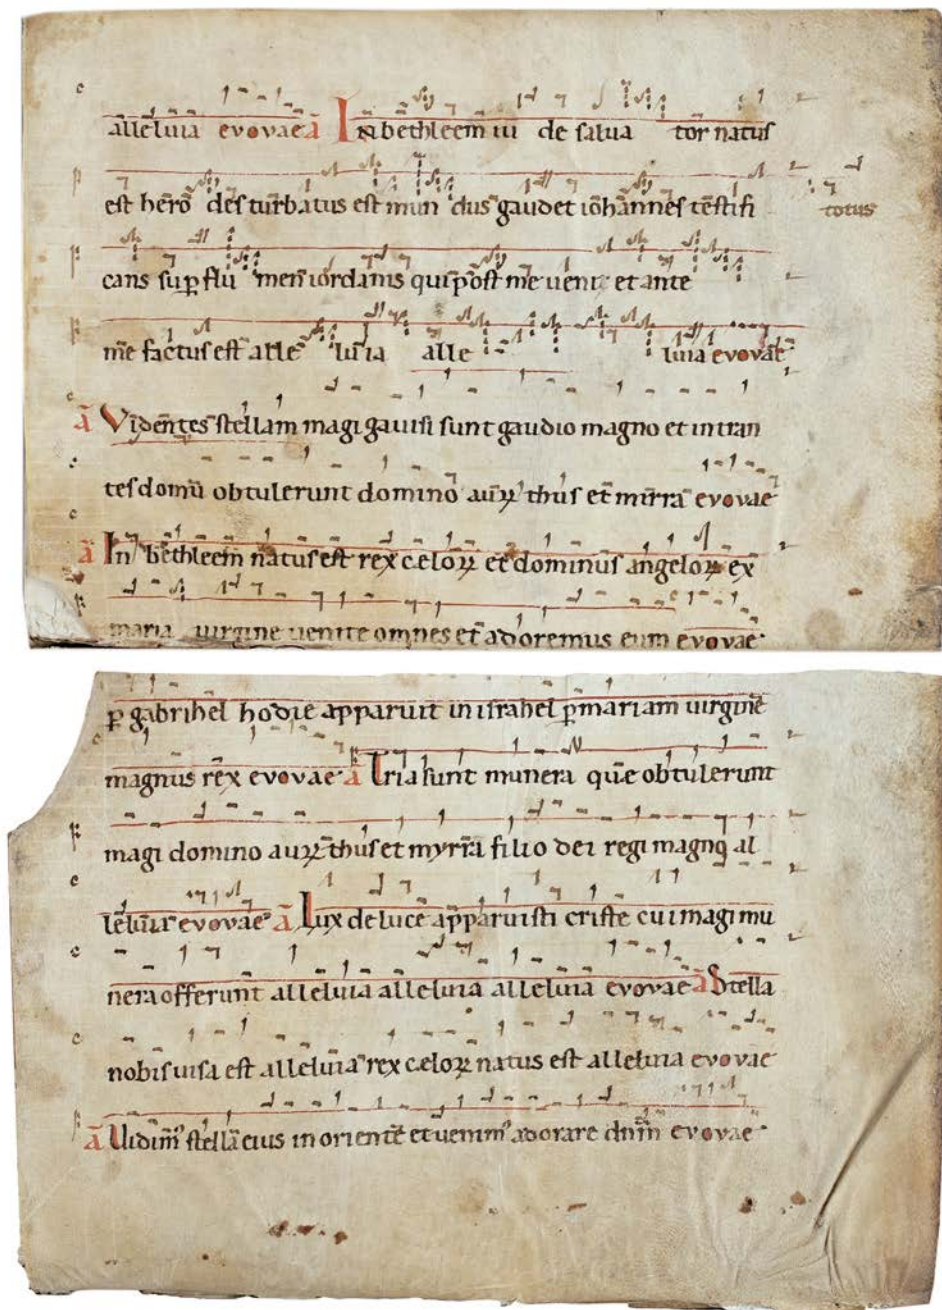 alleluia evovae ā In bethleem iu de salua tor natus
est hero des turbatus est mun dus gaudet iohannes testifi totus
cans sup flu men iordanis qui post me uenit et ante
me factus est alle lu ia alle luia evovae
ā Videntes stellam magi gauisi sunt gaudio magno et intran
tes domū obtulerunt domino auꝝ thus et mirrā evovae
ā In bethleem natus est rex cęloꝝ et dominus angeloꝝ ex
maria uirgine uenite omnes et adoremus eum evovae
ꝑ gabrihel hodie apparuit in israhel ꝑ mariam uirginē
magnus rex evovae ā Tria sunt munera quę obtulerunt
magi domino auꝝ thus et myrrā filio dei regi magno al
leluia evovae ā Lux de luce apparuisti criste cui magi mu
nera offerunt alleluia alleluia alleluia evovae ā Stella
nobis uisa est alleluia rex cęloꝝ natus est alleluia evovae
ā Uidim stellā eius in oriente et uenim adorare dnm evovae